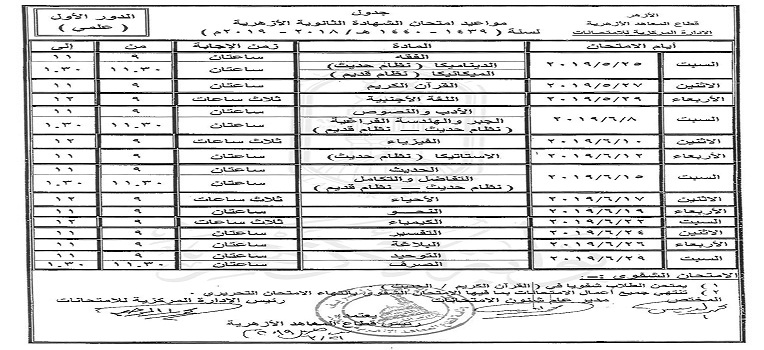 الأزهر
قطاع المعاهد الأزهرية
الإدارة المركزية للامتحانات
جدول
مواعيد امتحان الشهادة الثانوية الأزهرية
لسنة ( ١٤٣٩ - ١٤٤٠ هـ / ٢٠١٨ - ٢٠١٩م )
الدور الأول
( علمي )
أيام الامتحان المادة زمن الإجابة من إلى
السبت ٢٠١٩/٥/٢٥ الفقه ساعتان ٩ ١١
الديناميكا ( نظام حديث ) الميكانيكا ( نظام قديم ) ساعتان ١١.٣٠ ١.٣٠
الاثنين ٢٠١٩/٥/٢٧ القرآن الكريم ساعتان ٩ ١١
الأربعاء ٢٠١٩/٥/٢٩ اللغة الأجنبية ثلاث ساعات ٩ ١٢
السبت ٢٠١٩/٦/٨ الأدب والنصوص ساعتان ٩ ١١
الجبر والهندسة الفراغية ( نظام حديث — نظام قديم ) ساعتان ١١.٣٠ ١.٣٠
الاثنين ٢٠١٩/٦/١٠ الفيزياء ثلاث ساعات ٩ ١٢
الأربعاء ٢٠١٩/٦/١٢ الاستاتيكا ( نظام حديث ) ساعتان ٩ ١١
السبت ٢٠١٩/٦/١٥ الحديث ساعتان ٩ ١١
التفاضل والتكامل ( نظام حديث — نظام قديم ) ساعتان ١١.٣٠ ١.٣٠
الاثنين ٢٠١٩/٦/١٧ الأحياء ثلاث ساعات ٩ ١٢
الأربعاء ٢٠١٩/٦/١٩ النحو ساعتان ٩ ١١
السبت ٢٠١٩/٦/٢٢ الكيمياء ثلاث ساعات ٩ ١٢
الاثنين ٢٠١٩/٦/٢٤ التفسير ساعتان ٩ ١١
الأربعاء ٢٠١٩/٦/٢٦ البلاغة ساعتان ٩ ١١
السبت ٢٠١٩/٦/٢٩ التوحيد ساعتان ٩ ١١
الصرف ساعتان ١١.٣٠ ١.٣٠
الامتحان الشفوى :-
١ ) يمتحن الطلاب شفويا في ( القرآن الكريم / الحديث )
٢ ) تنتهي جميع أعمال الامتحانات بما فيها الامتحان الشفوي بانتهاء الامتحان التحريري .
المختص مدير عام شئون الامتحانات رئيس الإدارة المركزية للامتحانات
يعتمد
رئيس قطاع المعاهد الأزهرية